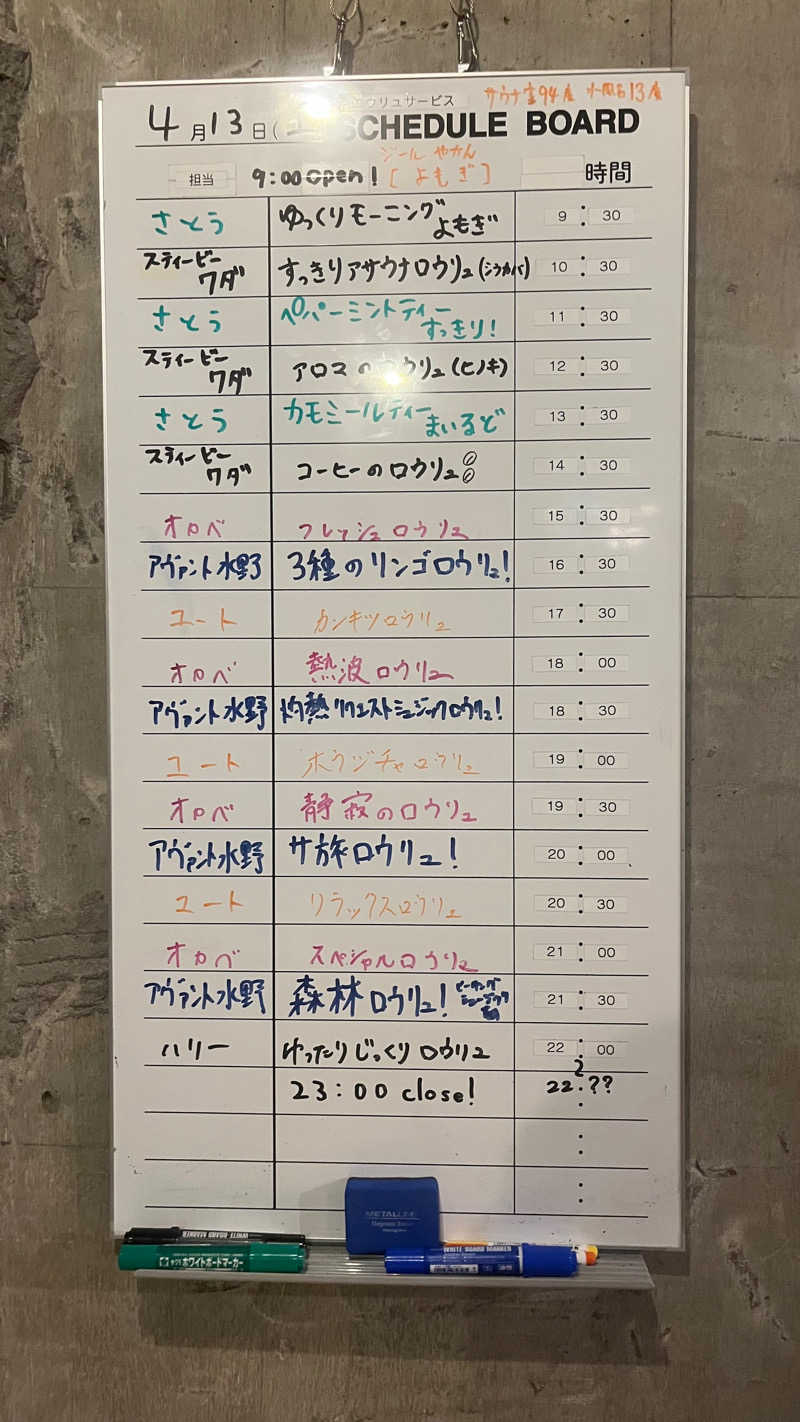 ウリュサービス サウナ室94度 水風呂13度
4月13日(土 SCHEDULE BOARD
ジール やかん
担当 9:00 open! [よもぎ] 時間
さとう ゆっくりモーニング よもぎ 9:30
スティービー ワダ すっきりアサウナロウリュ(シラカバ) 10:30
さとう ペパーミントティー すっきり! 11:30
スティービー ワダ アロマのロウリュ(ヒノキ) 12:30
さとう カモミールティー まいるど 13:30
スティービー ワダ コーヒーのロウリュ 14:30
オカベ フレッシュロウリュ 15:30
アヴァント水野 3種のリンゴロウリュ! 16:30
ユート カンキツロウリュ 17:30
オカベ 熱波ロウリュ 18:00
アヴァント水野 灼熱リクエストミュージックロウリュ! 18:30
ユート ホウジチャロウリュ 19:00
オカベ 静寂のロウリュ 19:30
アヴァント水野 サ旅ロウリュ! 20:00
ユート リラックスロウリュ 20:30
オカベ スペシャルロウリュ 21:00
アヴァント水野 森林ロウリュ! ヒーリング ミュージック 21:30
ハリー ゆったりじっくりロウリュ 22:00
23:00 close! 22:??
METALINE
WHITE BOARD MARKER
ホワイトボードマーカー
WHITE BOARD MARKER